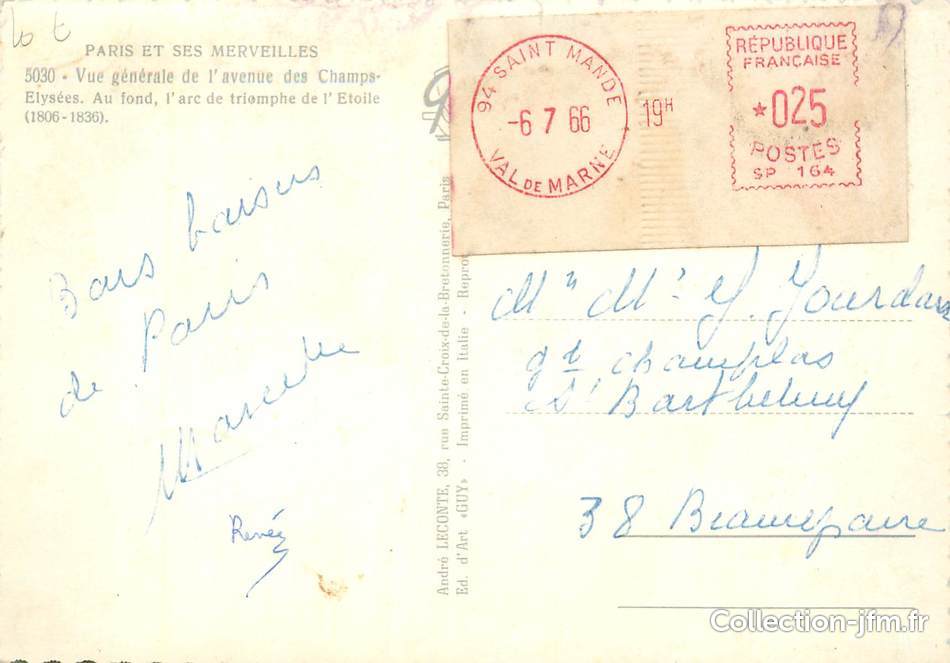 PARIS ET SES MERVEILLES
5030 - Vue générale de l'avenue des Champs-
Elysées. Au fond, l'arc de triomphe de l'Etoile
(1806-1836).
Bons baisers
de Paris
Marcelle
Renée
André LECONTE, 38, rue Sainte-Croix-de-la-Bretonnerie, Paris
Ed. d'Art «GUY» - Imprimé en Italie - Repro
94 SAINT MANDE
-6 7 66
VAL DE MARNE
19H
RÉPUBLIQUE
FRANÇAISE
*025
POSTES
SP 164
Mr Me J. Jourdan
qt champlas
St Barthelemy
38 Beaurepaire
Collection-jfm.fr